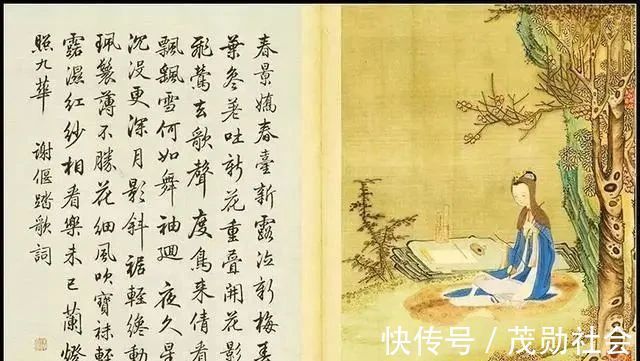 春景嬌春臺新露泣新梅春
葉參差吐新花重疊開花影
飛鶯去歌聲度鳥來倩看
飄飄雪何如舞袖廻 夜久星
沉沒更深月影斜 裾輕纔動
珮鬟薄不勝花細風吹寶袜輕
露濕紅紗相看樂未已蘭燈
照九華 謝偃踏歌詞
快传号 / 茂勋社会